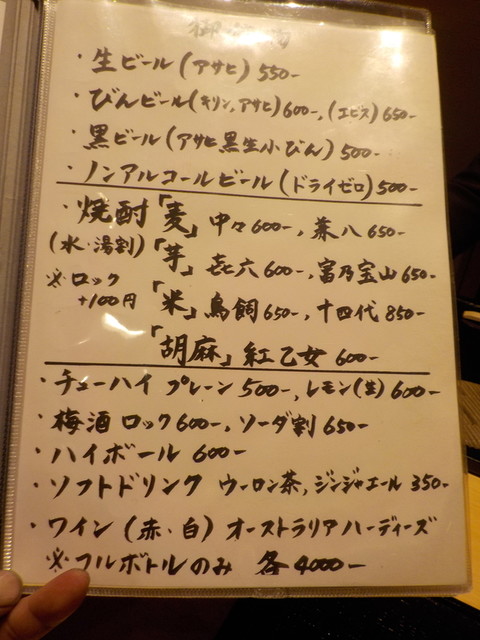 ・生ビール(アサヒ) 550-
・びんビール(キリン,アサヒ)600-,(エビス)650-
・黒ビール(アサヒ黒生小びん)500-
・ノンアルコールビール(ドライゼロ)500-
・焼酎「麦」中々600-,兼八650-
(水・湯割)「芋」㐂六600-,富乃宝山650-
※ロック「米」鳥飼650-,十四代850-
+100円
「胡麻」紅乙女 600-
・チューハイ プレーン500-,レモン(生)600-
・梅酒 ロック600-,ソーダ割650-
・ハイボール 600-
・ソフトドリンク ウーロン茶,ジンジャエール350-
・ワイン(赤・白)オーストラリアハーディーズ
※フルボトルのみ 各4000-